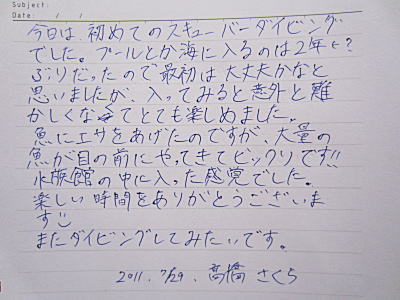 Subject:
Date: / /
今日は、初めてのスキューバーダイビング
でした。プールとか海に入るのは2年く?
ぶりだったので最初は大丈夫かなと
思いましたが、入ってみると意外と難
かしくなくてとても楽しめました。
魚にエサをあげたのですが、大量の
魚が目の前にやってきてビックリです!!
水族館の中に入った感覚でした。
楽しい時間をありがとうございま
す
またダイビングしてみたいです。
2011. 7/29. 髙橋 さくら